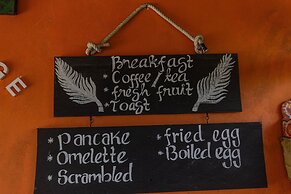 Breakfast
* Coffee / tea
* fresh fruit
* Toast
* Pancake
* Omelette
* Scrambled
* fried egg
* Boiled egg